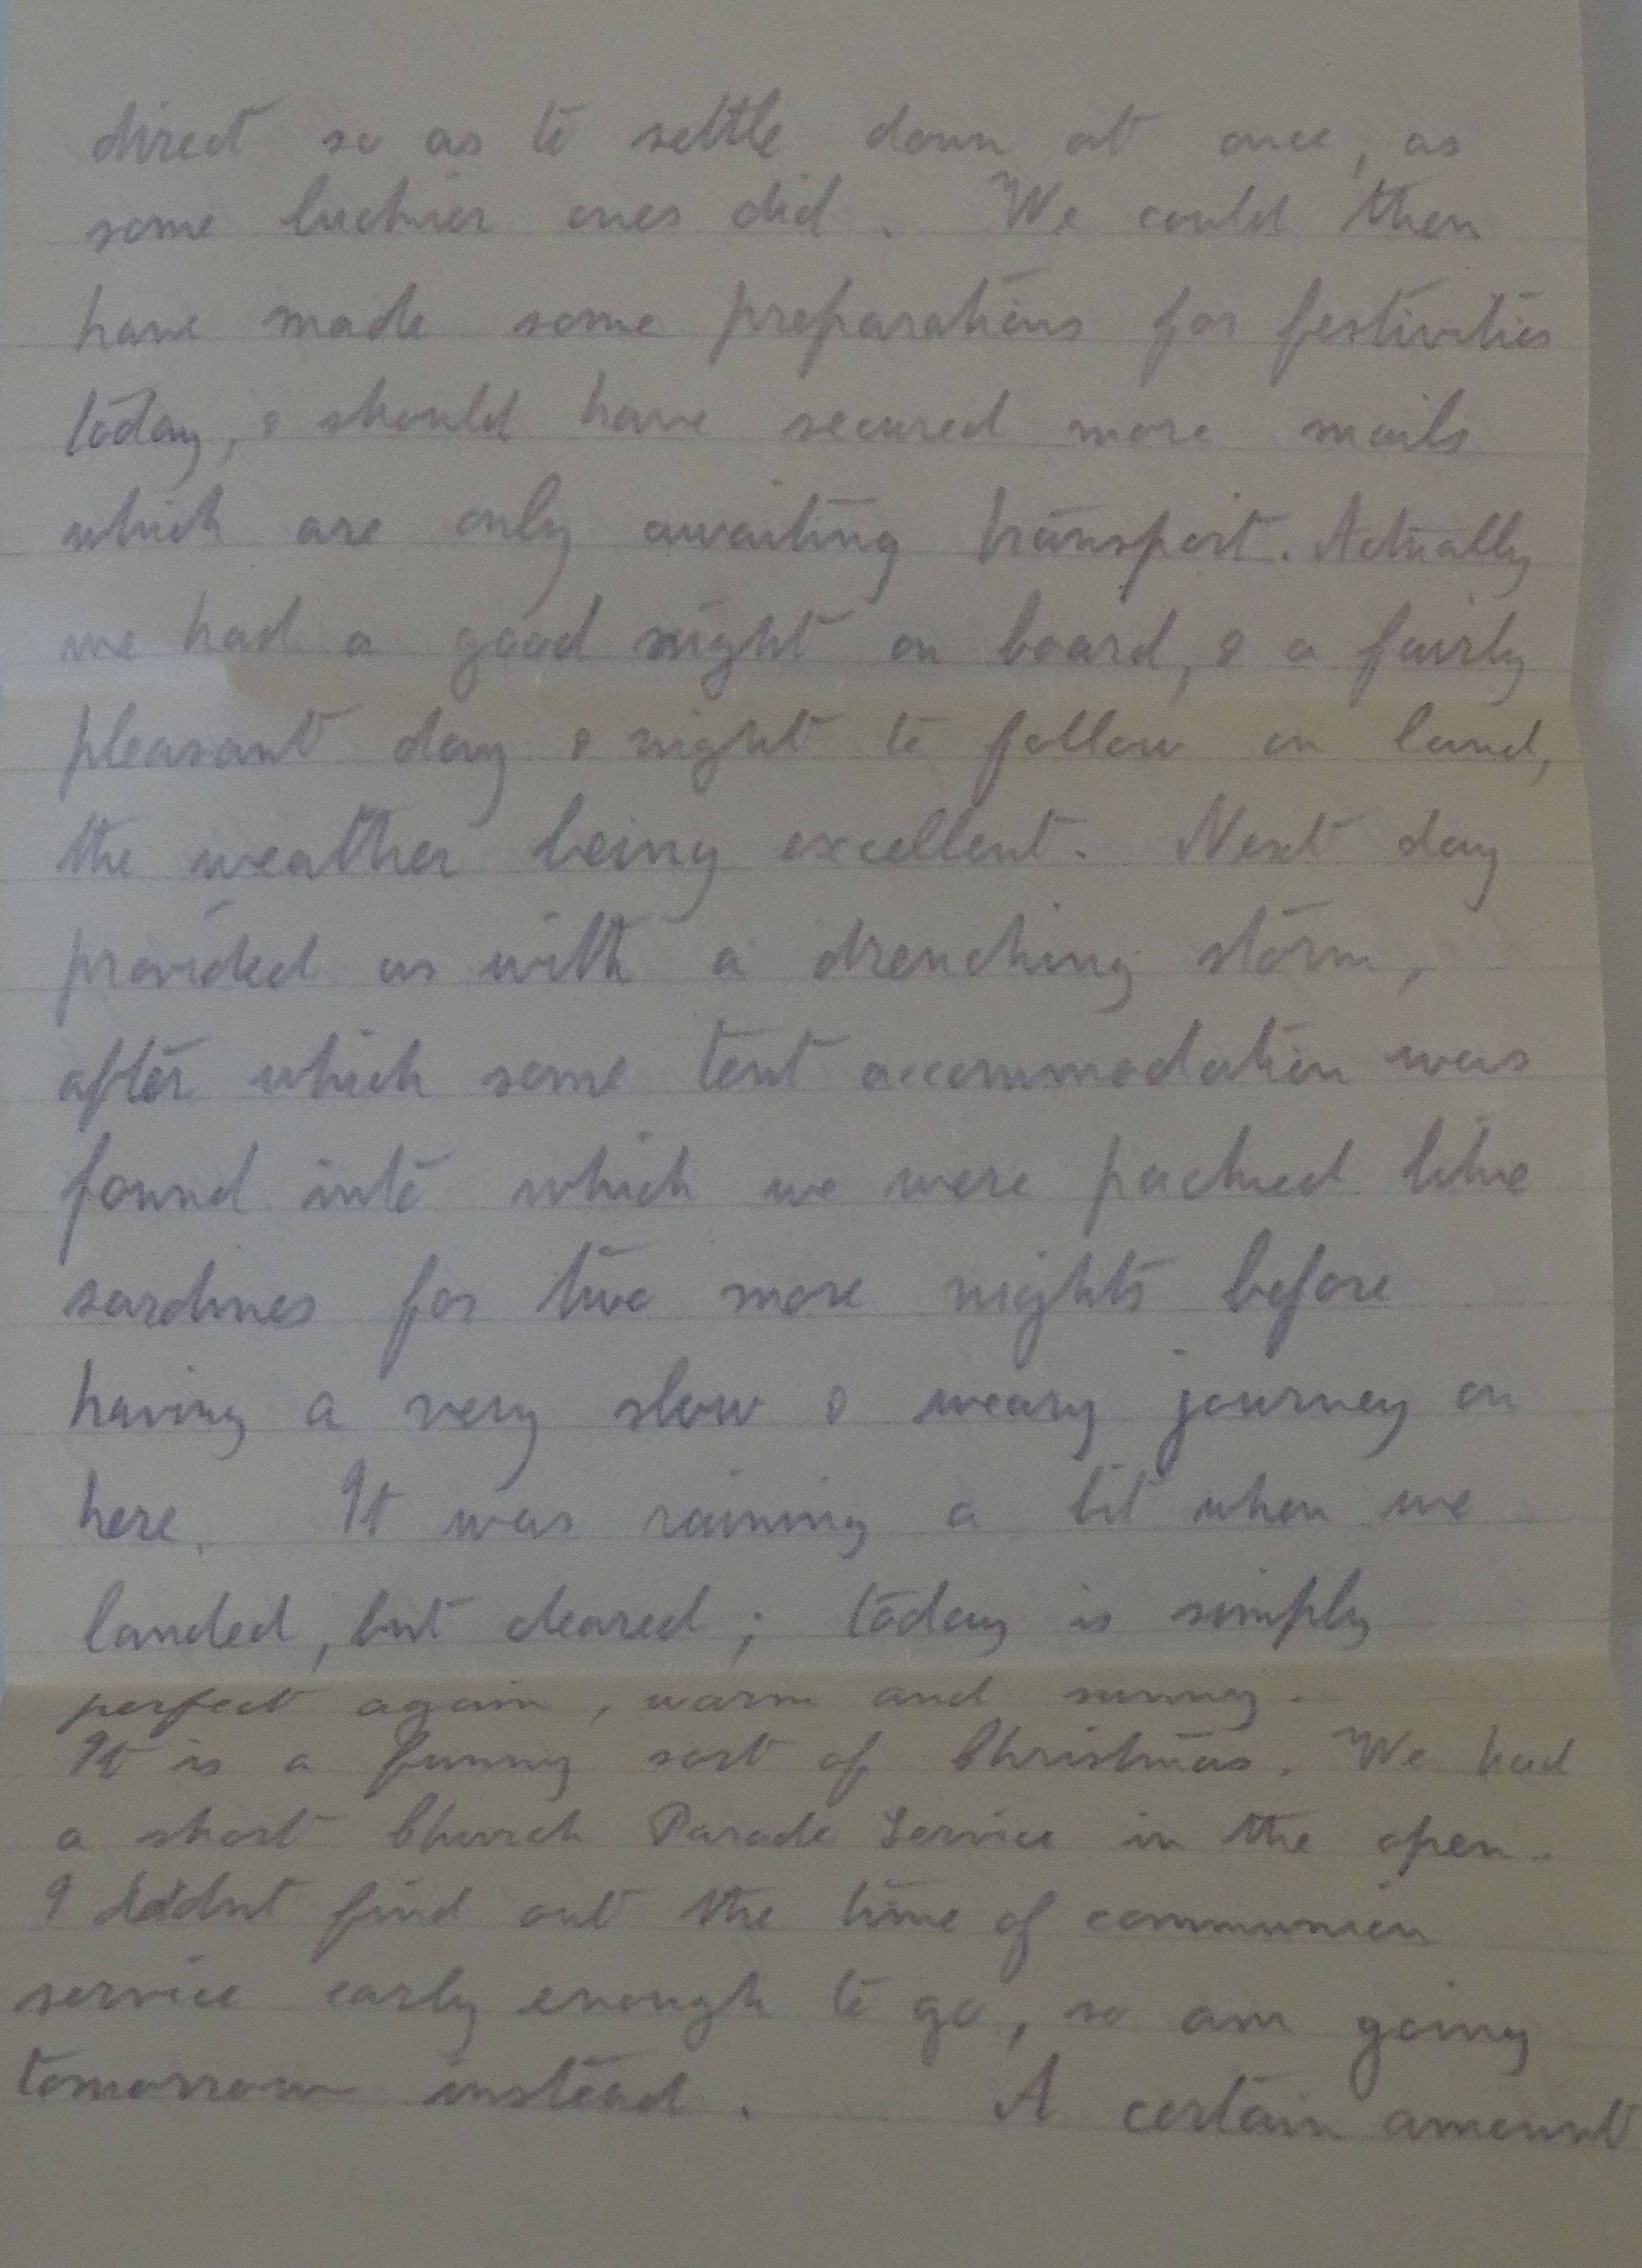 direct so as to settle down at once, as
some luckier ones did. We could then
have made some preparations for festivities
today, & should have secured more mails
which are only awaiting transport. Actually
we had a good night on board, & a fairly
pleasant day & night to follow on land,
the weather being excellent. Next day
provided us with a drenching storm,
after which some tent accommodation was
found into which we were packed like
sardines for two more nights before
having a very slow & weary journey on
here. It was raining a bit when we
landed, but cleared; today is simply
perfect again, warm and sunny.
It is a funny sort of Christmas. We had
a short Church Parade Service in the open.
I didnt find out the time of communion
service early enough to go, so am going
tomorrow instead. A certain amount